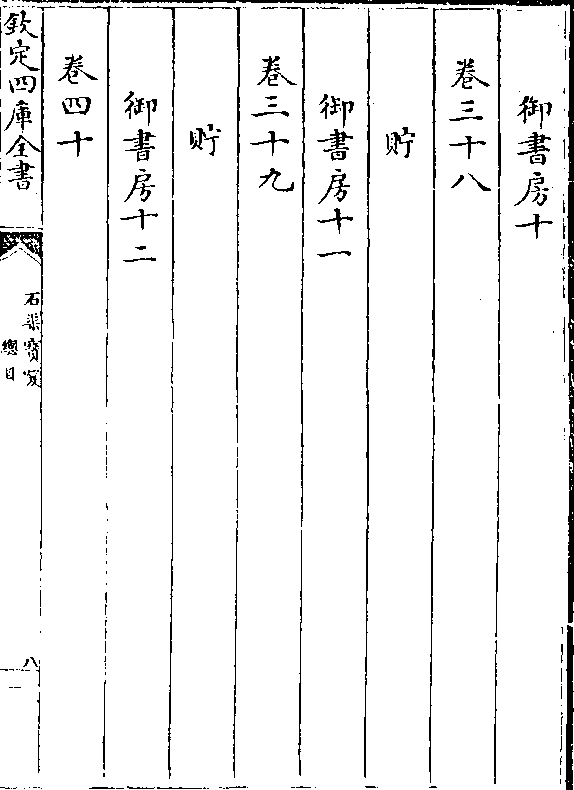 御書房十
卷三十八
貯
御書房十一
卷三十九
貯
御書房十二
卷四十
欽定四庫全書
石渠寶笈
總目
八